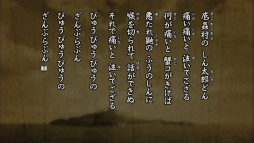 底名村のしん太郎どん
痛い痛いと泣いてござる
何が痛いと蟹コがきけば
悪たれ鼬のふうのしんに
喉を切られて話ができぬ
それで痛いと泣いてござる
びゅうびゅうびゅうの
ざんぶらぶん
びゅうびゅうびゅうの
ざんぶらぶん